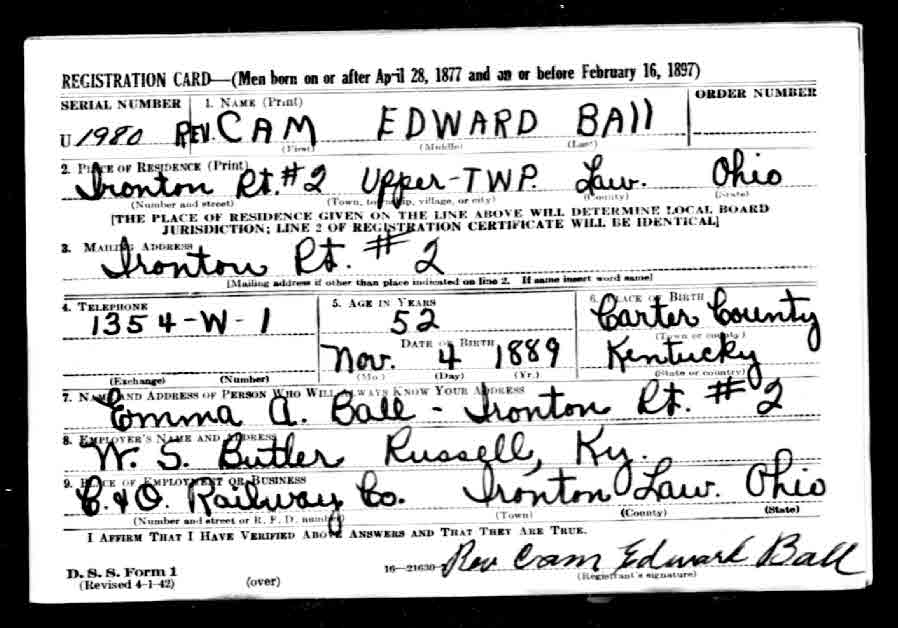 REGISTRATION CARD—(Men born on or after April 28, 1877 and on or before February 16, 1897)
SERIAL NUMBER 1. NAME (Print) ORDER NUMBER
U 1980 REV. CAM EDWARD BAll
(First) (Middle) (Last)
2. PLACE OF RESIDENCE (Print)
Ironton Rt. #2 Upper-TWP. Law. Ohio
(Number and street) (Town, township, village, or city) (County) (State)
[THE PLACE OF RESIDENCE GIVEN ON THE LINE ABOVE WILL DETERMINE LOCAL BOARD
JURISDICTION; LINE 2 OF REGISTRATION CERTIFICATE WILL BE IDENTICAL]
3. MAILING ADDRESS
Ironton Rt. #2
[Mailing address if other than place indicated on line 2. If same insert word same]
4. TELEPHONE 5. AGE IN YEARS 6. PLACE OF BIRTH
1354-W-1 52 Carter County
(Town or county)
DATE OF BIRTH
Nov. 4 1889 Kentucky
(Exchange) (Number) (Mo.) (Day) (Yr.) (State or country)
7. NAME AND ADDRESS OF PERSON WHO WILL ALWAYS KNOW YOUR ADDRESS
Emma A. Ball - Ironton Rt. #2
8. EMPLOYER'S NAME AND ADDRESS
W. S. Butler Russell, Ky.
9. PLACE OF EMPLOYMENT OR BUSINESS
C. & O. Railway Co. Ironton Law. Ohio
(Number and street or R. F. D. number) (Town) (County) (State)
I AFFIRM THAT I HAVE VERIFIED ABOVE ANSWERS AND THAT THEY ARE TRUE.
Rev Cam Edward Ball
D. S. S. Form 1 16—21630 (Registrant's signature)
(Revised 4-1-42) (over)